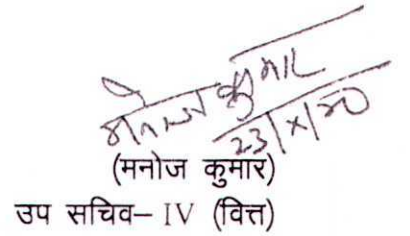 मनोज कुमार
23/X/20
(मनोज कुमार)
उप सचिव– IV (वित्त)